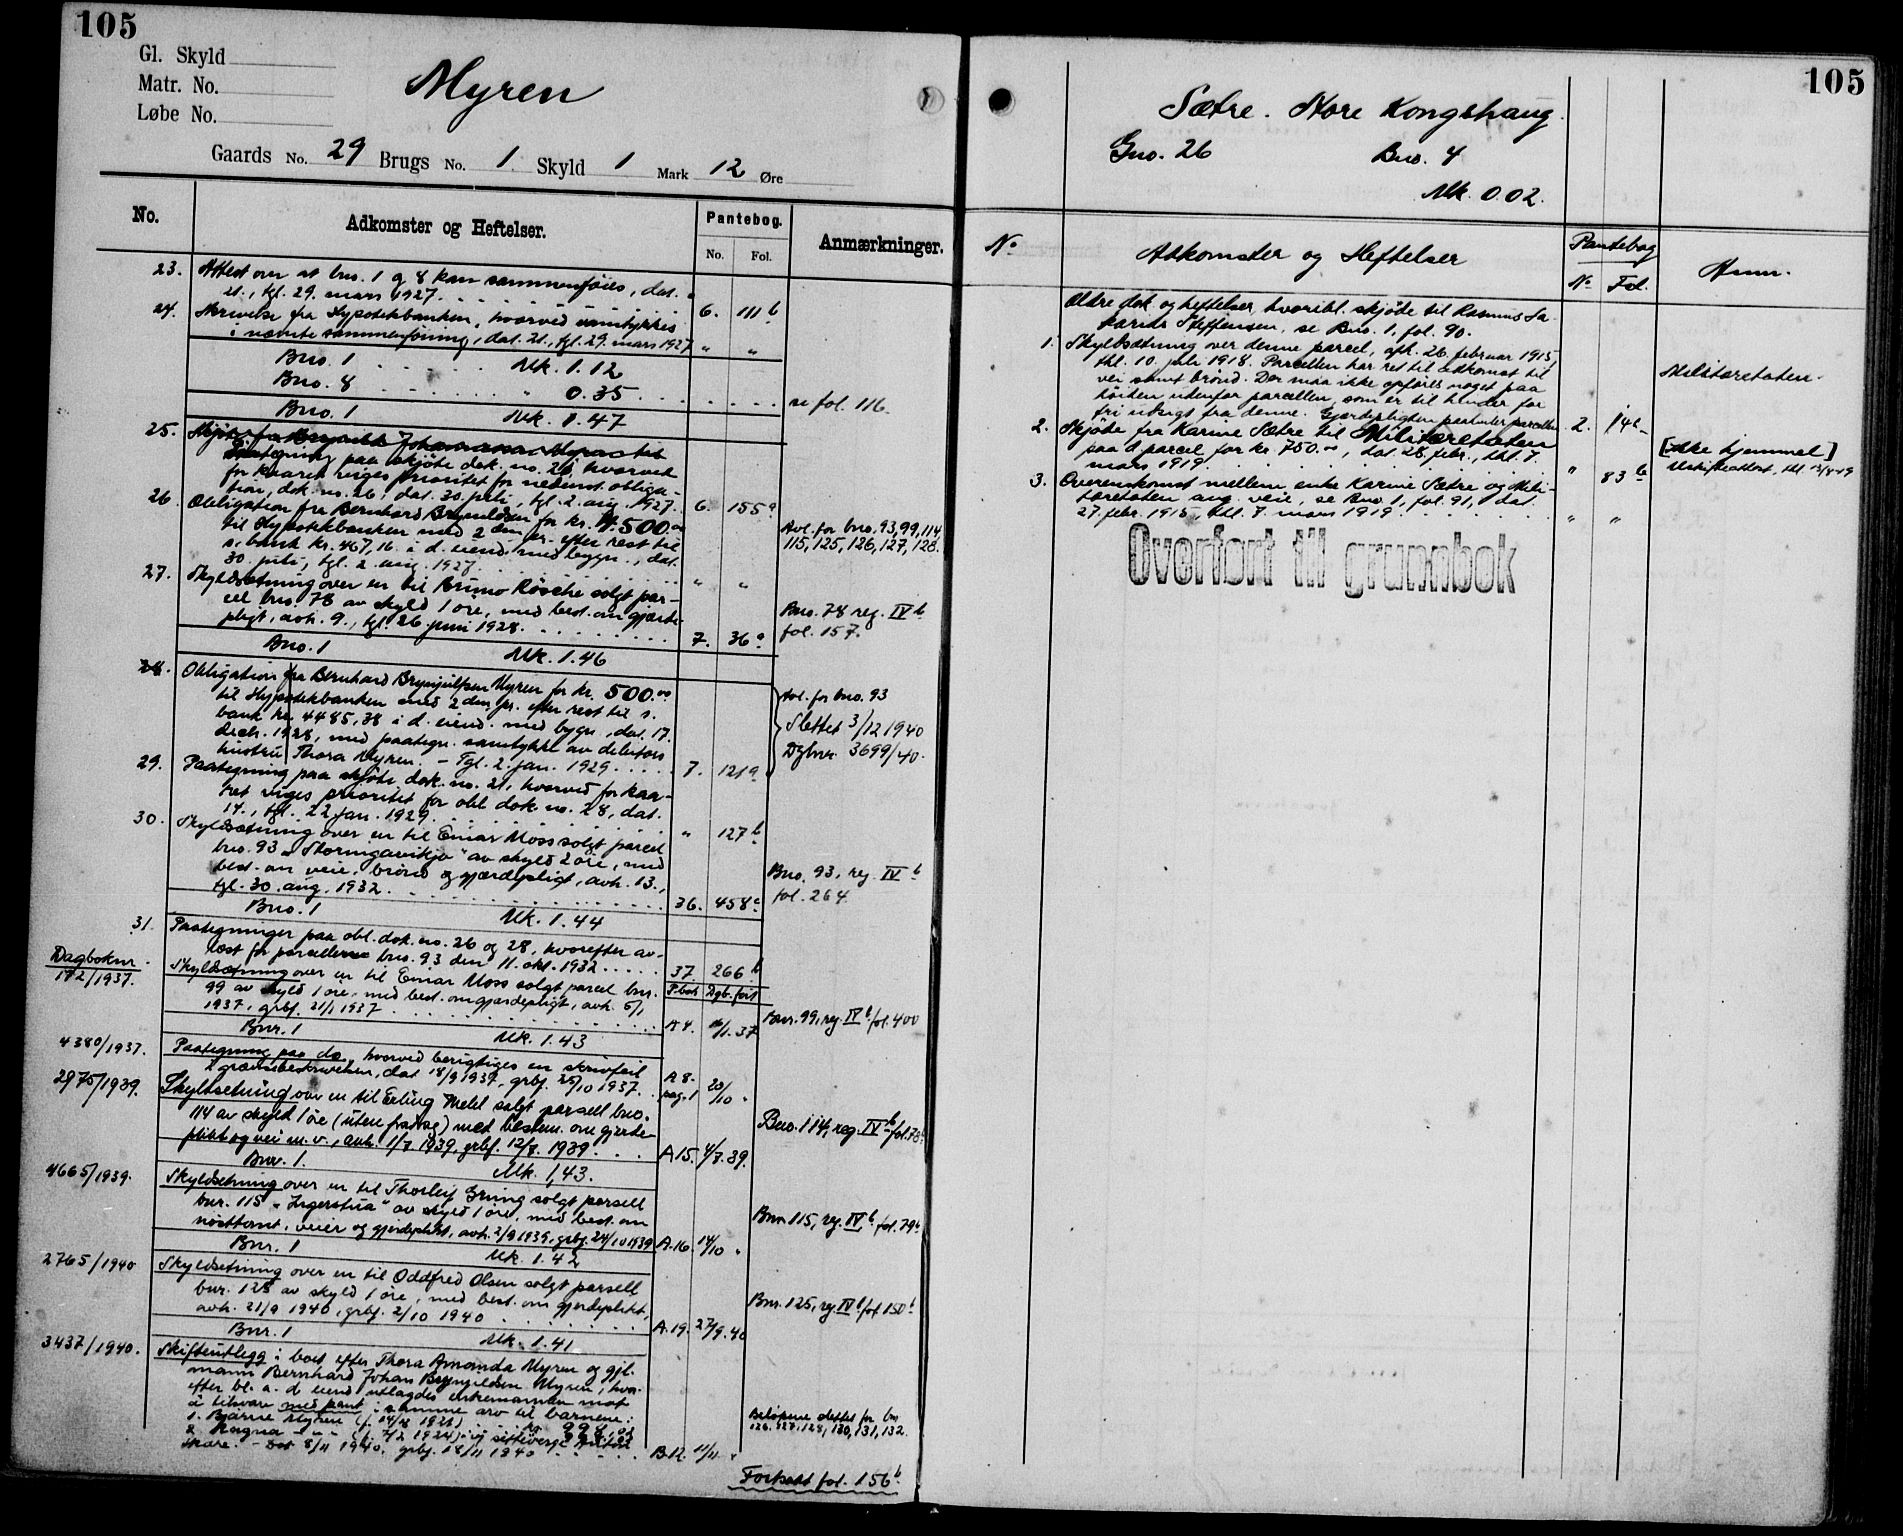 105
Gl. Skyld
Matr. No.
Løbe No.
Myren
Gaards No. 29 Brugs No. 1 Skyld 1 Mark 12 Øre
No.
Adkomster og Heftelser.
Pantebog.
No. Fol.
Anmærkninger.
23. Attest over at bno. 1 og 8 kan sammenføies, dat.
21., tgl. 29. mars 1927. 6. 111 b
24. Skrivelse fra Hypotekbanken, hvorved samtykkes
i nævnte sammenføining, dat. 21., tgl. 29. mars 1927 " "
Bno. 1 Mk. 1.12
Bno. 8 " 0.35 se fol. 116.
Bno. 1 Mk. 1.47
25.
Paategning paa skjøte dok. no. 21 hvorved
for kaaret viges prioritet for nedenst. obliga-
tion, dok. no. 26, dat. 30. juli, tgl. 2. aug. 1927. 6. 155 a
26. Obligation fra Bernhard Brynildsen for kr. 500.00
til Hypotekbanken med 2den pr. efter rest til
s. bank kr. 467,16 i d. eiend. med bygn., dat.
30. juli, tgl. 2. aug. 1927. " "
Avl. for bno. 93, 99, 114,
115, 125, 126, 127, 128.
27. Skyldsætning over en til Bruno Røsche solgt par-
cel bno. 78 av skyld 1 øre, med best. om gjærde-
pligt, avh. 9., tgl. 26 juni 1928. 7. 36 a
Bno. 78 reg. IV b
fol. 157.
Bno. 1 Mk. 1.46
28. Obligation fra Bernhard Brynjulfsen Myren for kr. 500.00
til Hypotekbanken med 2den pr. efter rest til s.
bank kr. 4485,38 i d. eiend. med bygn., dat. 17.
decb. 1928, med paategn. samtykke av debitors
hustru Thora Myren. - Tgl. 2. jan. 1929. 7. 121 a
Avl. for bno. 93
Slettet 3/12 1940
Dgbnr. 3699/40.
29. Paategning paa skjøte dok. no. 21, hvorved for kaa-
ret viges prioritet for obl. dok. no. 28, dat.
14., tgl. 22 jan. 1929. " 127 b
30. Skyldsætning over en til Einar Moss solgt parcel
bno. 93 av skyld 2 øre, med
best. om veie, brønd og gjærdepligt, avh. 13.,
tgl. 30. aug. 1932. 36. 458 a
Bno. 93, reg. IV b
fol. 264.
Bno. 1 Mk. 1.44
31. Paategninger paa obl. dok. no. 26 og 28, hvorefter av-
læst for parcellen bno. 93 den 11. okt. 1932 37 266 b
Dagboknr.
172/1937.
P.bok Dgb. ført
Skyldsætning over en til Einar Moss solgt parcel bnr.
99 av skyld 1 øre, med best. om gjærdepligt, avh. 5/1
1937, grbf. 21/1 1937 A 4. /1.37
Bnr. 99, reg. IV b fol. 400
Bnr. 1 Mk. 1.43
4380/1937. Paategning paa do., hvorved berigtiges en skrivfeil
i grænsebeskrivelsen, dat. 18/9 1937, grbf. 25/10 1937. A 8. pag. 1 20/10 "
2975/1939. Skyldsetning over en til Erling Meld solgt parsell bno.
114 av skyld 1 øre (uten fradrag) med bestem. om gjerde-
plikt og vei m. v., avh. 1/7 1939, grbf. 12/7 1939. A 15. 4/7.39.
Bno. 114, reg. IV b fol. 78 b
Bnr. 1. Mk. 1,43.
4665/1939. Skyldsetning over en til Thorleif Gruing solgt parsell
bnr. 115 "Ingerstua" av skyld 1 øre, med best. om
nosttomt, veier og gjerdeplikt, avh. 2/9 1939, grbf. 24/10 1939 A.16. 14/10 "
Bnr. 115, reg. IV b, fol. 79 b
Bnr. 1 Mk. 1.42
2765/1940 Skyldsetning over en til Oddfred Olsen solgt parsell
bnr. 125 av skyld 1 øre, med best. om gjerdeplikt,
avh. 21/9 1940, grbf. 2/10 1940 A.19. 27/9.40
Bnr. 125, reg. IV b fol. 150 b
Bnr. 1 Mk. 1.41
3437/1940. Skifteutlegg i boet efter Thora Amanda Myren og gjl.
mann Bernhard Johan Brynjulfsen Myren, hvor-
efter bl. a. d. eiend. utlagdes enkemannen mot
å tilsvare med pant i samme arv til barnene:
1. Bjarne Myren (f. 14/4 1921)
2. Ragna " (f. 7/2 1924)
Skare. - Dat. 8/11 1940, grbf. 18/11 1940 B.12. 11/11 "
Beløpene slettet for bnr.
126, 127, 128, 130, 131, 132.
Fortsatt fol. 156 b.
105
Sætre. Store Kongshaug.
Gno. 26 Bno. 4
Mk. 0.02.
No Adkomster og Heftelser
Pantebog
No Fol.
Anm.
Ældre dok. og heftelser, hvoribl. skjøde til Rasmus Za-
karias Steffensen, se Bno. 1, fol. 90.
1. Skyldsætning over denne parcel, afh. 26. februar 1915,
thl. 10. juli 1918. Parcellen har ret til adkomst til
vei samt brønd. Der maa ikke opføres noget paa
høiden udenfor parcellen, som er til hinder for
fri udsigt fra denne. Gjærdepligten paahviler parcellen 2. 14 b
Militæretaten.
2. Skjøde fra Karine Sætre til Militæretaten
paa d. parcel for kr. 750.00, dat. 28. febr., thl. 7.
mars 1919. " 83 b
[ikke hjemmel]
3. Overenskomst mellem enke Karine Sætre og Mili-
tæretaten ang. veie, se Bno. 1, fol. 91, dat.
27. febr. 1915, thl. 7. mars 1919. " "
Overført til grunnbok